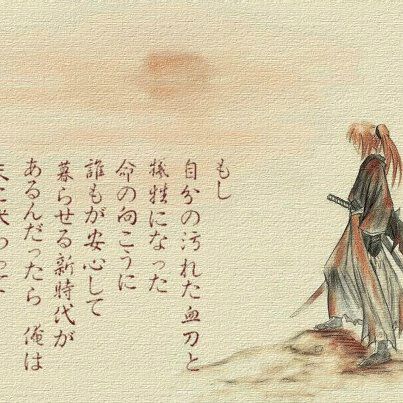 もし
自分の汚れた血刀と
犠牲になった
命の向こうに
誰もが安心して
暮らせる新時代が
あるんだったら 俺は